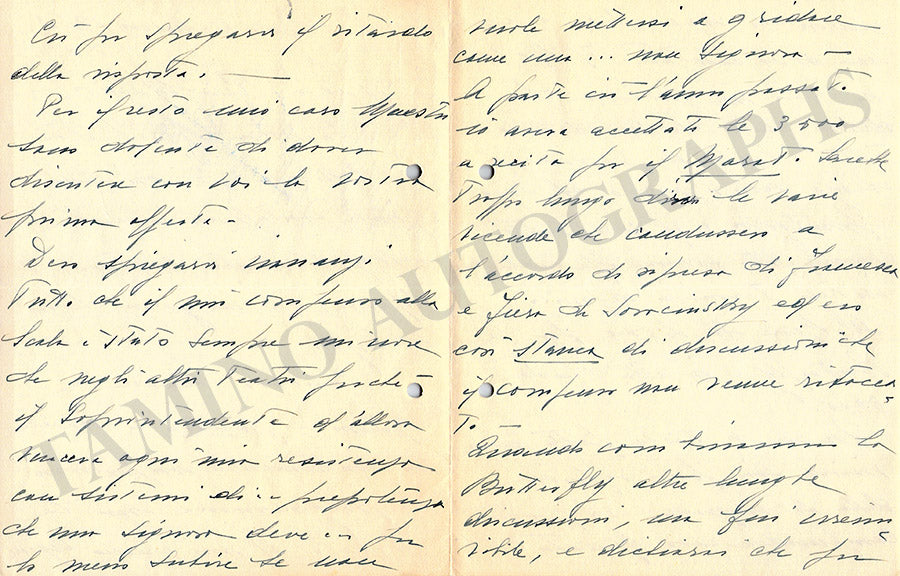 Ciò per spiegarvi il ritardo
della risposta. —
Per questo mio caro Maestro
sono dolente di dover
discutere con Voi la vostra
prima offerta –
Devo spiegarvi innanzi
tutto che il mio compenso alla
Scala è stato sempre minore
che negli altri Teatri perchè
il Soprintendente d'allora
vinceva ogni mia resistenza
con sistemi di .. prepotenza
che una signora deve .. per
lo meno subire se non
vuole mettersi a gridare
come una ... non signora –
A parte ciò l'anno passato
io avevo accettato le 3500
a recita per il Marat.
troppo lungo dirvi le varie
vicende che condussero a
l'accordo di ripresa di Francesca
e Fiera di Sorocinsky ed ero
così stanca di discussioni che
il compenso non venne ritocca
to –
Quando combinammo la
Butterfly altre lunghe
discussioni, ma fui irremo
vibile, e dichiarai che per
TAMINO AUTOGRAPHS